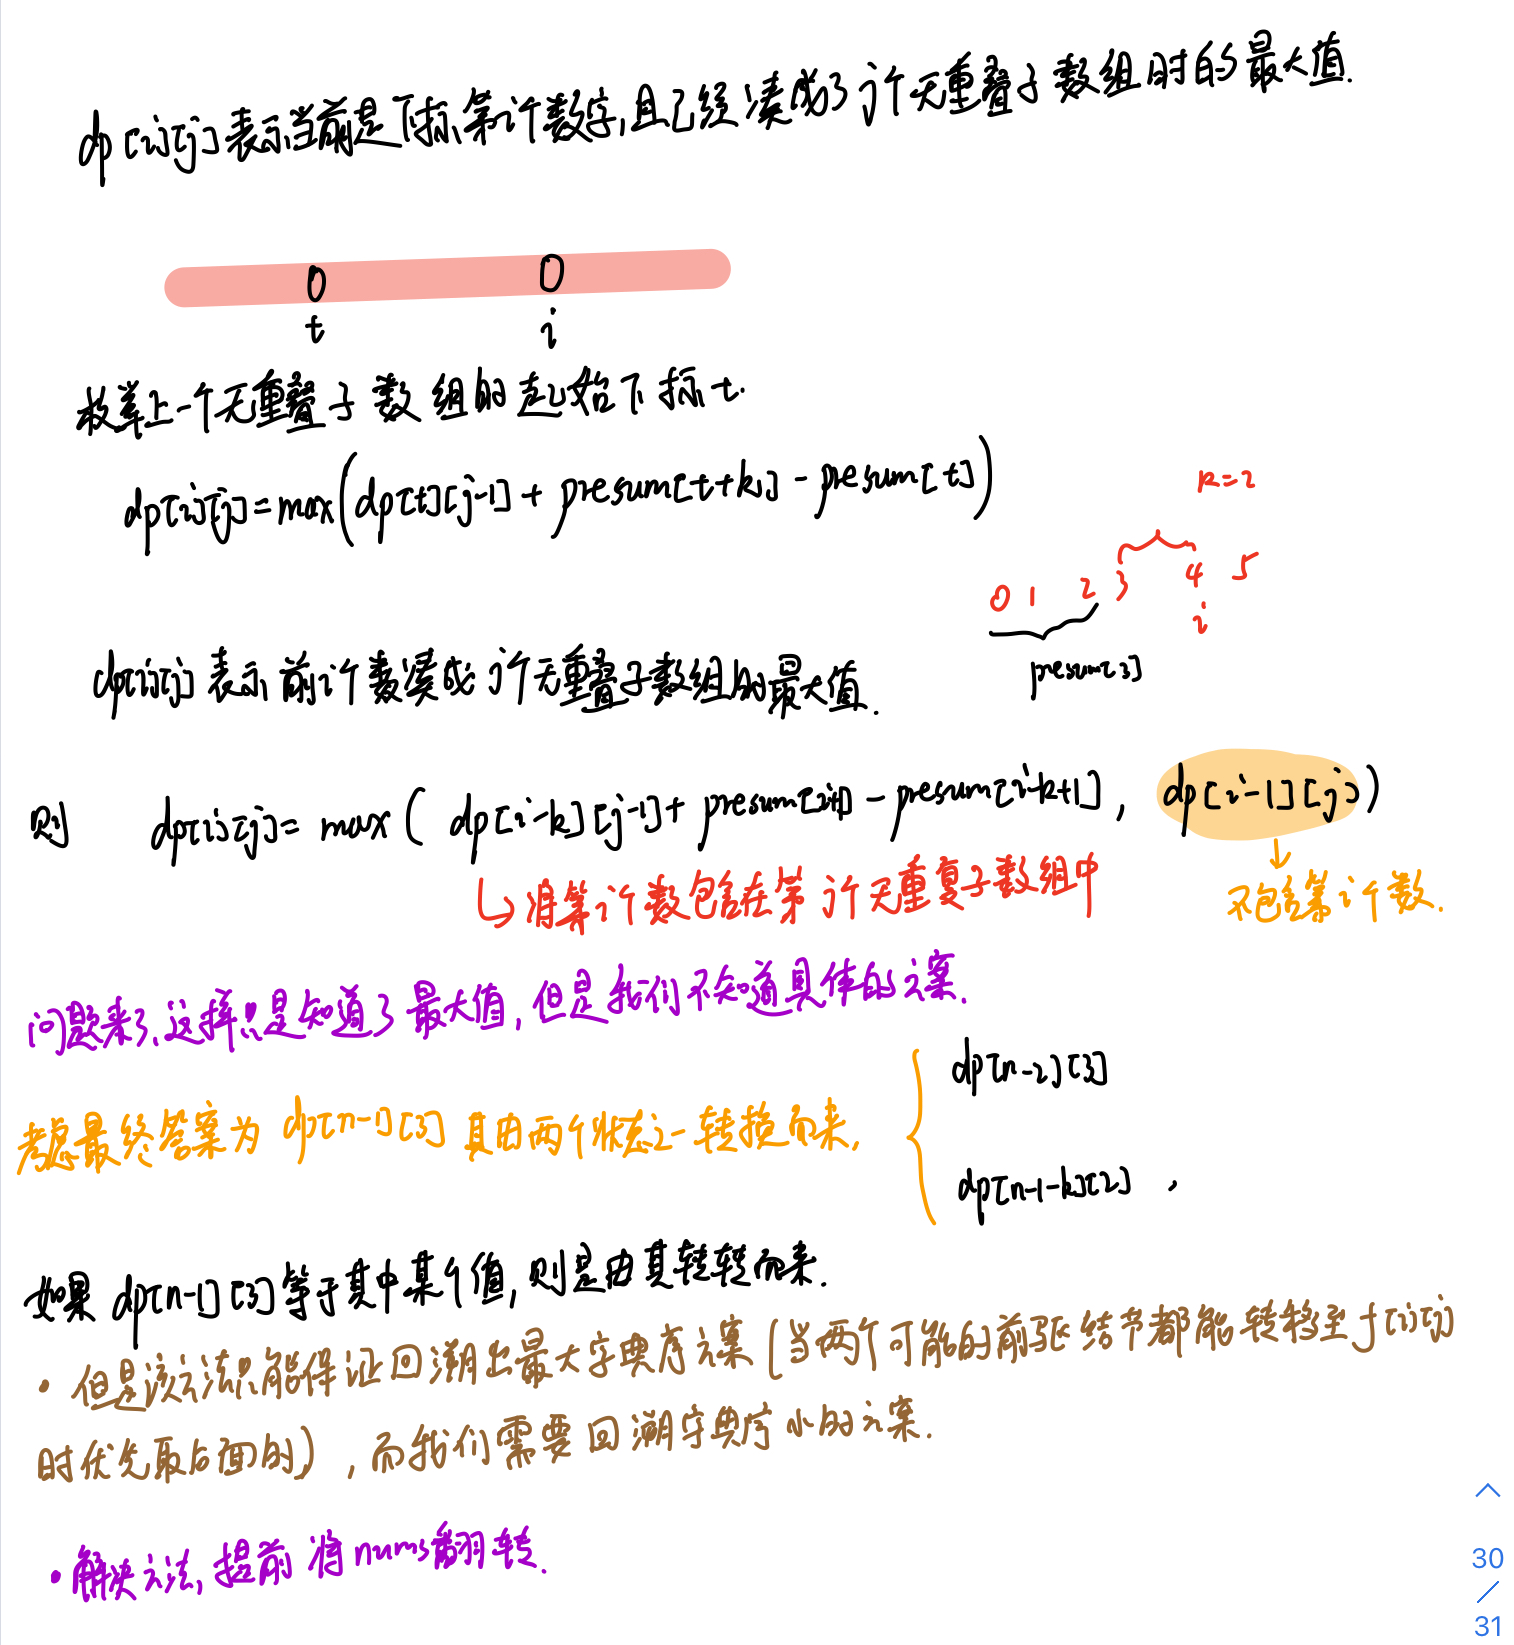 dp[i][j]表示当前是下标第i个数字,且已经凑成了j个无重叠子数组时的最大值.
0 0
t i
枚举上一个无重叠子数组的起始下标t.
dp[i][j]=max(dp[t][j-1]+presum[t+k]-presum[t])
k=2
0 1 2 3 4 5
i
presum[3]
dp[i][j]表示前i个数凑成j个无重叠子数组的最大值.
则 dp[i][j]= max( dp[i-k][j-1]+presum[i+1]-presum[i-k+1], dp[i-1][j])
将第i个数包含在第j个无重复子数组中
不包含第i个数.
问题来了,这样只是知道了最大值,但是我们不知道具体的方案.
考虑最终答案为 dp[n-1][3] 其由两个状态之一转换而来,
dp[n-2][3]
dp[n-1-k][2] ,
如果 dp[n-1][3]等于其中某个值,则是由其转转而来.
• 但是该方法只能保证回溯出最大字典序方案(当两个可能的前驱结节都能转移至f[i][j]
时优先取后面的),而我们需要回溯字典序小的方案.
• 解决方法,提前将nums翻转.
30
/
31